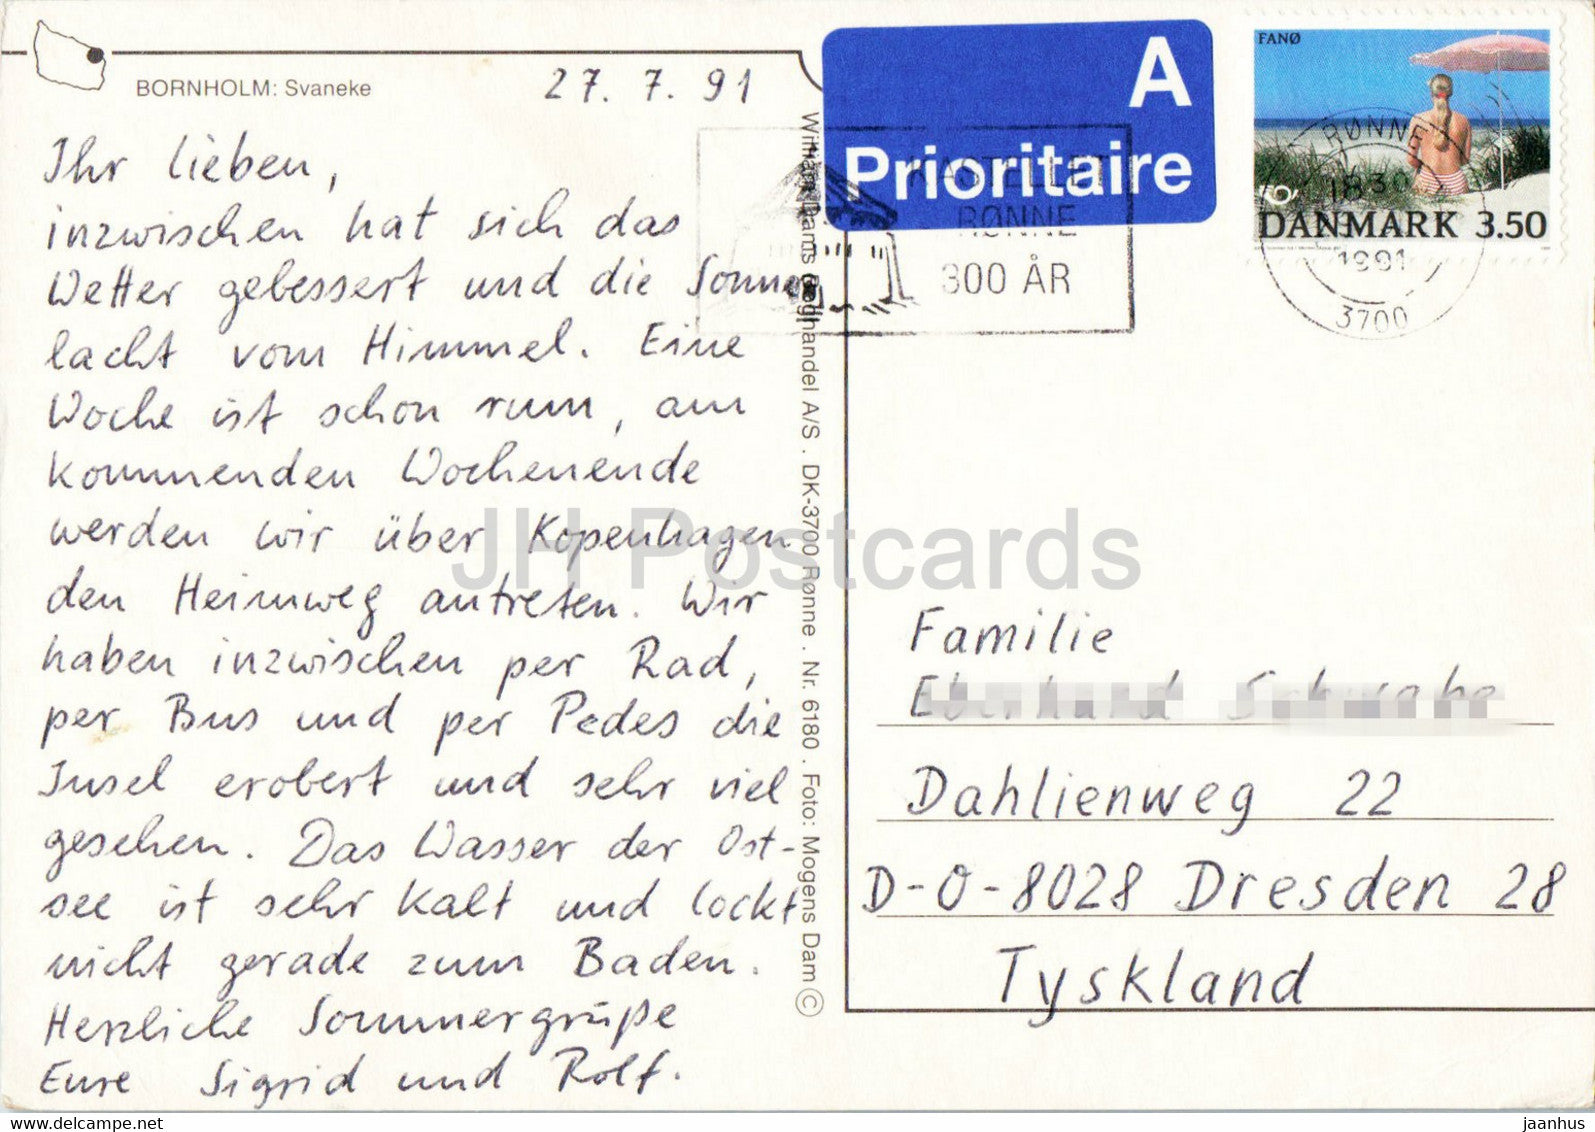 BORNHOLM: Svaneke
27. 7. 91
Ihr lieben,
inzwischen hat sich das
Wetter gebessert und die Sonne
lacht vom Himmel. Eine
Woche ist schon rum, am
kommenden Wochenende
werden wir über Kopenhagen
den Heimweg antreten. Wir
haben inzwischen per Rad,
per Bus und per Pedes die
Insel erobert und sehr viel
gesehen. Das Wasser der Ost-
see ist sehr kalt und lockt
nicht gerade zum Baden.
Herzliche Sommergrüße
Eure Sigrid und Rolf.
William Dams Boghandel A/S . DK-3700 Rønne . Nr. 6180 . Foto: Mogens Dam ©
A
Prioritaire
KASTELLET
RØNNE
300 ÅR
FANØ
DANMARK 3.50
RØNNE
1991
3700
JH Postcards
Familie
Dahlienweg 22
D-O-8028 Dresden 28
Tyskland
www.delcampe.net
jaanhus